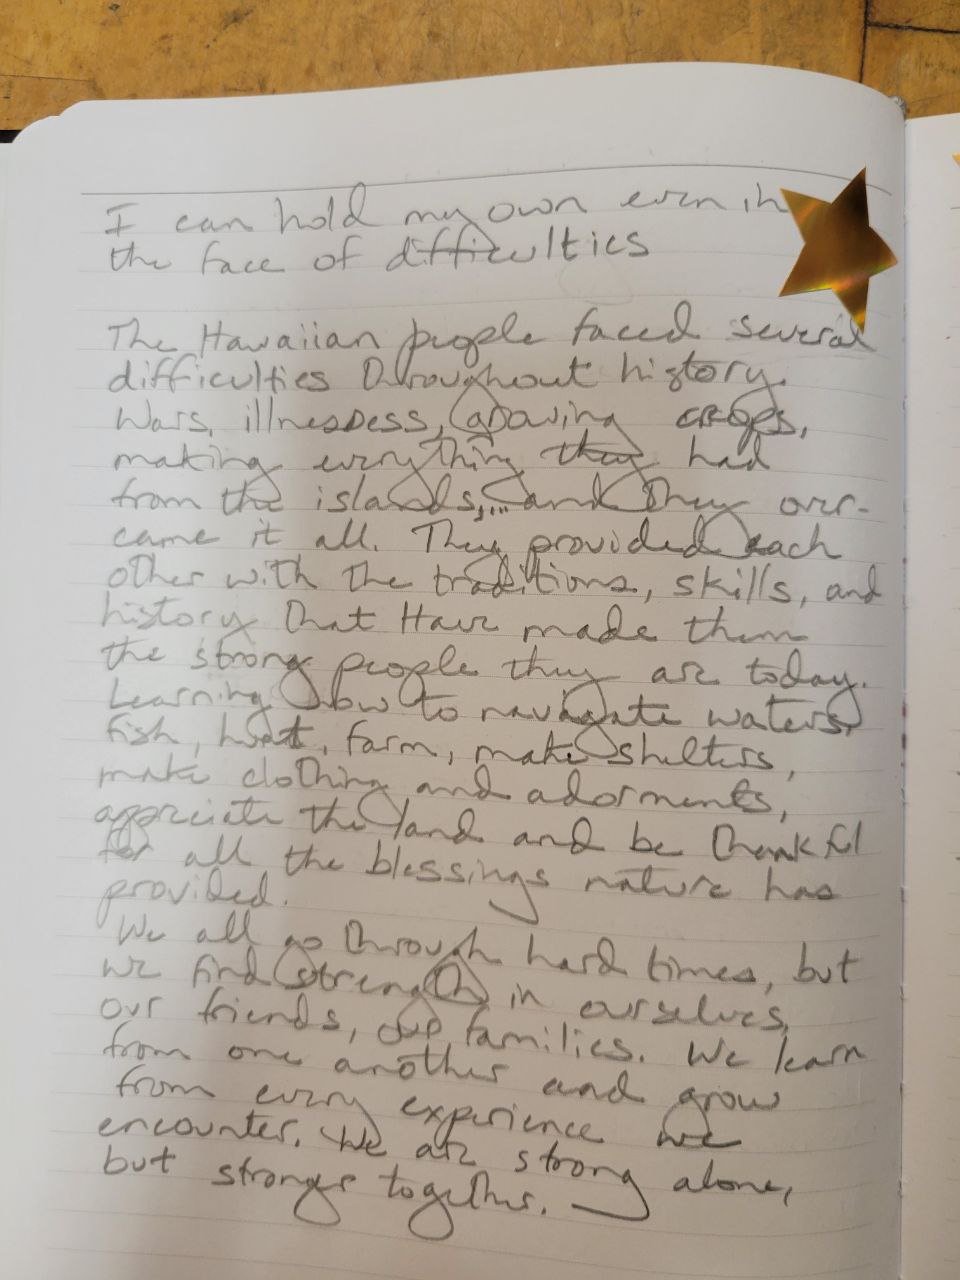 I can hold my own even in
the face of difficulties
The Hawaiian people faced several
difficulties throughout history.
Wars, illnessess, growing crops,
making everything they had
from the islands,... and they over-
came it all. They provided each
other with the traditions, skills, and
history that Have made them
the strong people they are today.
Learning how to navagate waters,
fish, hunt, farm, make shelters,
make clothing and adorments,
appriciate the land and be thankful
for all the blessings nature has
provided.
We all go through hard times, but
we find strength in ourselves,
our friends, our families. We learn
from one another and grow
from every experience we
encounter. We are strong alone,
but stronger together.